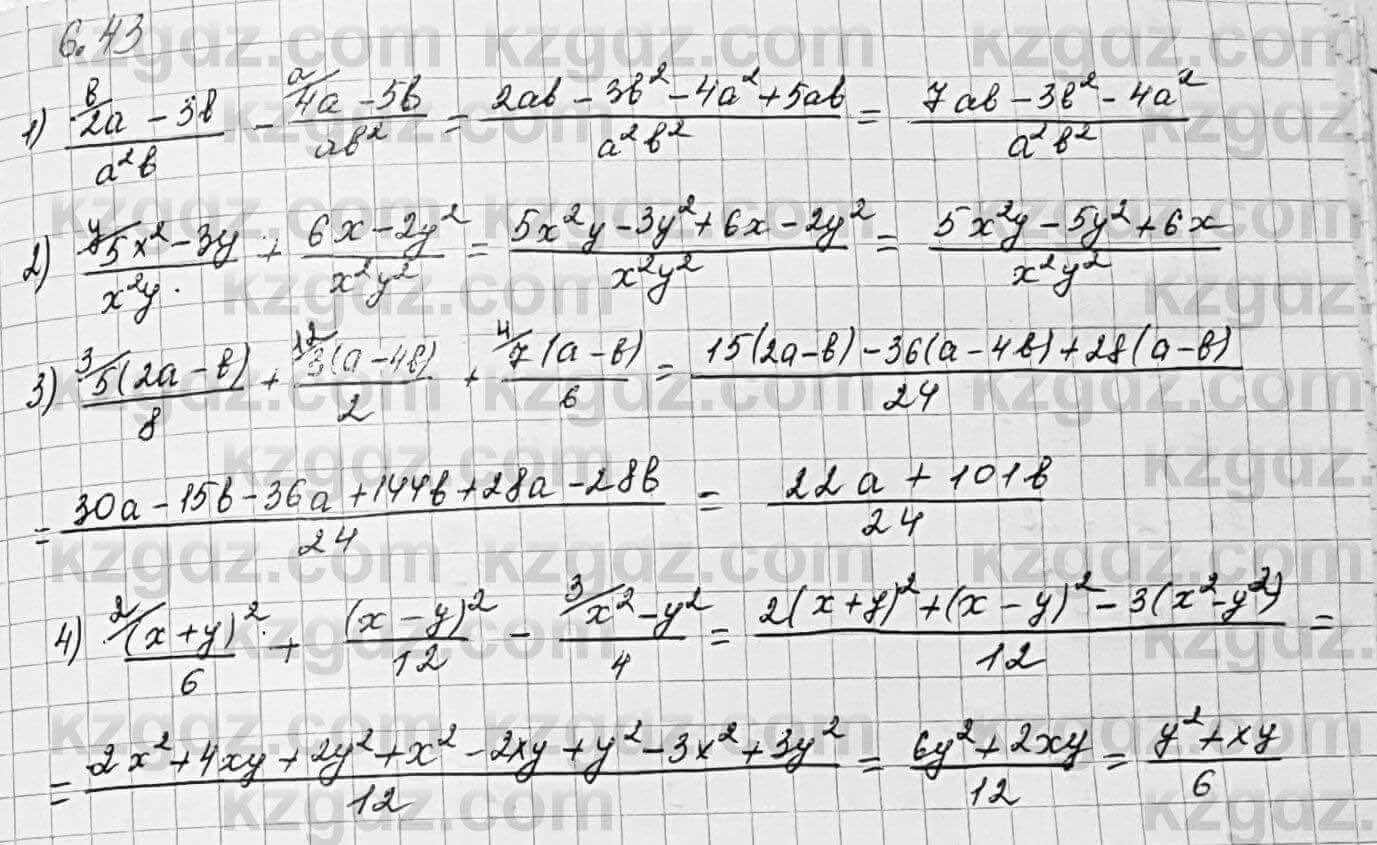 6.43
1) (ᵇ/2a - 3b)/(a²b) - (ᵃ/4a - 5b)/(ab²) = (2ab - 3b² - 4a² + 5ab)/(a²b²) = (7ab - 3b² - 4a²)/(a²b²)
2) (ʸ/5x² - 3y)/(x²y) + (6x - 2y²)/(x²y²) = (5x²y - 3y² + 6x - 2y²)/(x²y²) = (5x²y - 5y² + 6x)/(x²y²)
3) (³/5(2a - b))/8 + (¹²/3(a - 4b))/2 + (⁴/7(a - b))/6 = (15(2a - b) - 36(a - 4b) + 28(a - b))/24
= (30a - 15b - 36a + 144b + 28a - 28b)/24 = (22a + 101b)/24
4) (²/(x + y)²)/6 + (x - y)²/12 - (³/x² - y²)/4 = (2(x + y)² + (x - y)² - 3(x² - y²))/12 =
= (2x² + 4xy + 2y² + x² - 2xy + y² - 3x² + 3y²)/12 = (6y² + 2xy)/12 = (y² + xy)/6
kzgdz.com